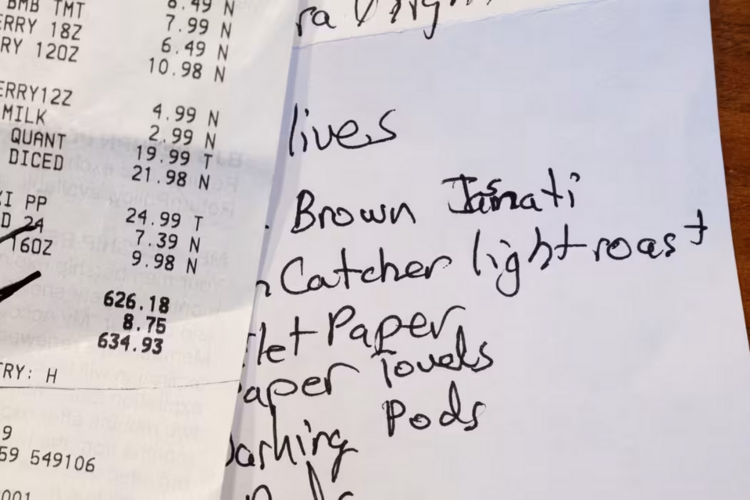 BMB TMT 8.49 N
ERRY 18Z 7.99 N
RY 120Z 6.49 N
10.98 N
ERRY12Z
MILK 4.99 N
QUANT 2.99 N
DICED 19.99 T
21.98 N
KI PP
D 24 24.99 T
160Z 7.39 N
9.98 N
626.18
8.75
634.93
TRY: H
9
59 549106
001
ra
lives
Brown
Catcher light roast
let Paper
aper Towels
ashing Pods